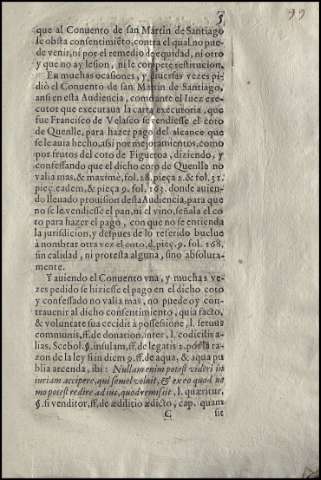 3
99
que al Conuento de san Martin de Santiago
le obsta consentimiẽto, contra el qual no pue-
de venir, ni por el remedio de equidad, ni otro
y que no ay lesion, ni le compete restitucion.
En muchas ocasiones, y diuersas vezes pi-
dió el Conuento de san Martin de Santiago,
ansi en esta Audiencia, como ante el Iuez exe-
cutor que executaua la carta executoria, que
fue Francisco de Velasco se vendiesse el coto
de Quenlle, para hazer pago del alcance que
se le auia hecho, assi por mejoramientos, como
por frutos del coto de Figueroa, diziendo, y
confessando que el dicho coto de Quenlla no
valia mas, & maximè, fol. 28. pieça 2. & fol. 51.
pieç. eadem, & pieça 9. fol. 163. donde auien-
do lleuado prouision desta Audiencia, para que
no se le vendiesse el pan, ni el vino, señala el co
to para hazer el pago, con que no se entienda
la jurisdicion, y despues de lo referido buelue
à nombrar otra vez el coto, d. pieç. 9. fol. 168.
sin calidad, ni protesta alguna, sino absoluta-
mente.
Y auiendo el Conuento vna, y muchas ve-
zes pedido se hiziesse el pago en el dicho coto
y confessado no valia mas, no puede oy con-
trauenir al dicho consentimiento, quia facto,
& voluntate sua cecidit à possessione, l. seruus
communis, ff. de donation. inter. l. codicilis a-
lias, Scebol. §. insulam, ff. de legatis 2. por la ra-
zon de la ley si in diem 9. ff. de aqua, & aqua plu
blia arcenda, ibi: Nullam enim potest videri in
iuriam accipere, qui semel voluit, & ex eo quod no
mo potest redire ad ius, quod remisit, l. quæritur,
§. si venditor, ff. de ædilitio ædicto, cap. quam
G
sit